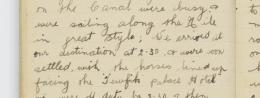 on the Canal were busy &
were sailing along the Nile
in great style; We arrived at
our destination at 2-30, & were soon
settled, with the horses lined up
facing the Jewish palace Hotel
we were off duty by 3-30 & then